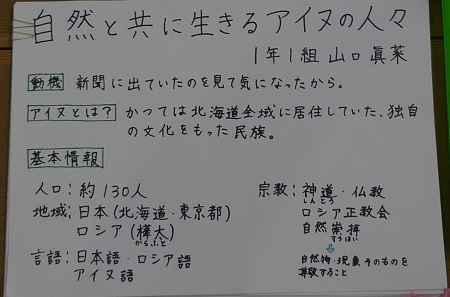 自然と共に生きるアイヌの人々
1年1組 山口 眞菜
動機 新聞に出ていたのを見て気になったから。
アイヌとは? かつては北海道全域に居住していた、独自
の文化をもった民族。
基本情報
人口:約130人
地域:日本(北海道・東京都)
ロシア(樺太)
からふと
言語:日本語・ロシア語
アイヌ語
宗教:神道・仏教
しんとう
ロシア正教会
自然崇拝
すうはい
自然物・現象そのものを
尊敬すること